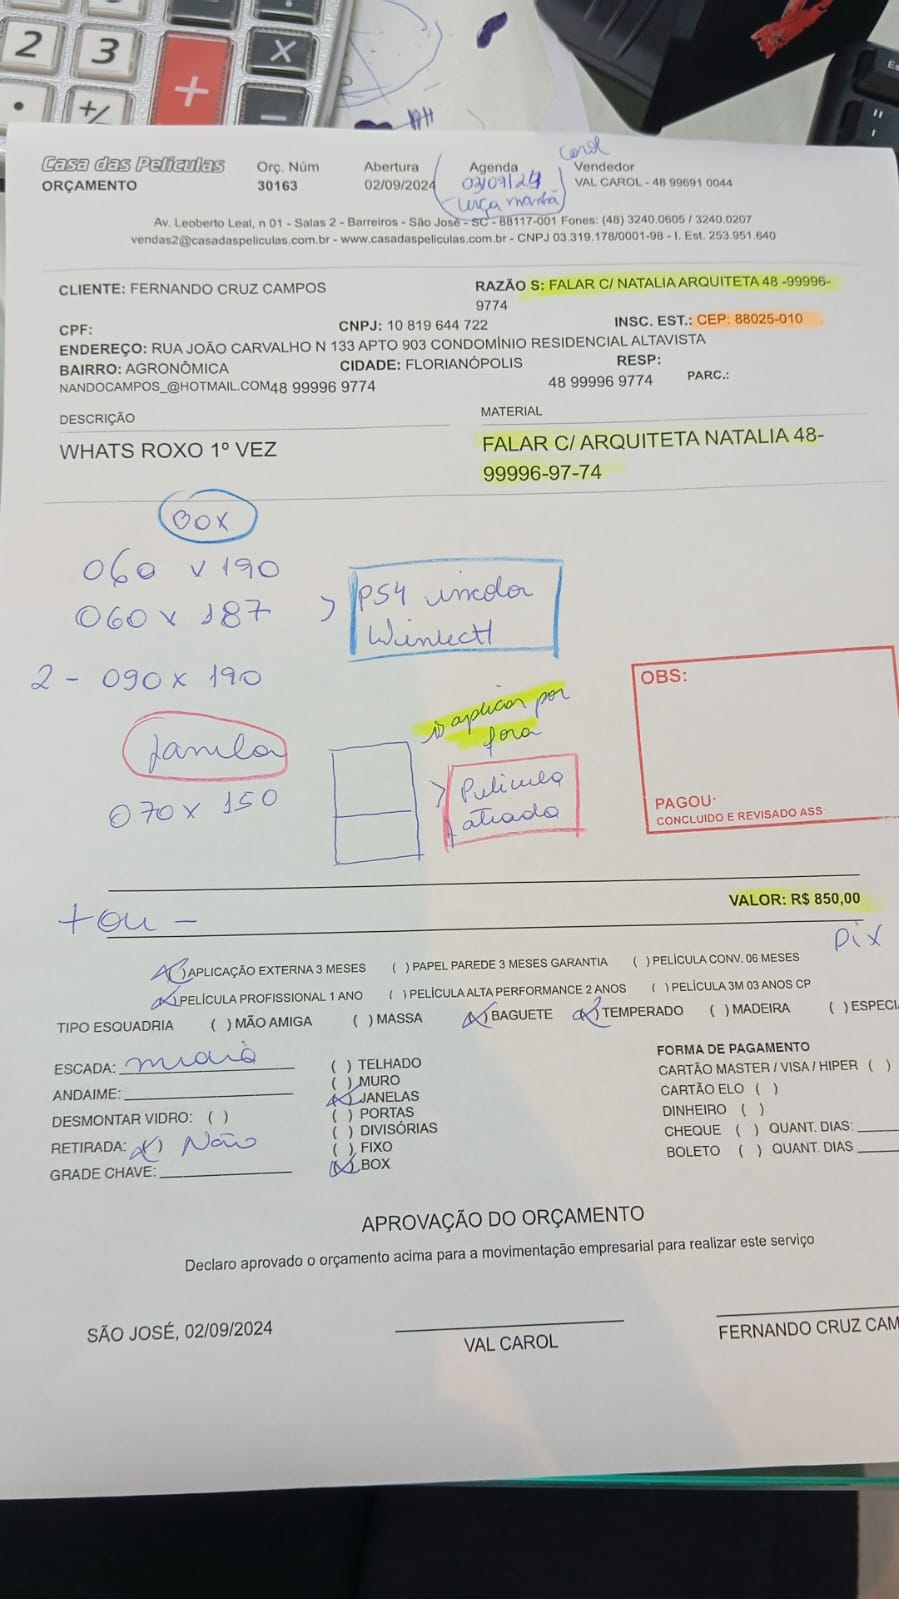 2 3 + X
. +/- −
Casa das Películas
ORÇAMENTO
Orç. Núm
30163
Abertura
02/09/2024
Agenda
03/09/24
terça manhã
Carol
Vendedor
VAL CAROL - 48 99691 0044
Av. Leoberto Leal, n 01 - Salas 2 - Barreiros - São José - SC - 88117-001 Fones: (48) 3240.0605 / 3240.0207
vendas2@casadaspeliculas.com.br - www.casadaspeliculas.com.br - CNPJ 03.319.178/0001-98 - I. Est. 253.951.640
CLIENTE: FERNANDO CRUZ CAMPOS
RAZÃO S: FALAR C/ NATALIA ARQUITETA 48 -99996-
9774
CPF:
CNPJ: 10 819 644 722
INSC. EST.: CEP: 88025-010
ENDEREÇO: RUA JOÃO CARVALHO N 133 APTO 903 CONDOMÍNIO RESIDENCIAL ALTAVISTA
BAIRRO: AGRONÔMICA
CIDADE: FLORIANÓPOLIS
RESP:
NANDOCAMPOS_@HOTMAIL.COM48 99996 9774
48 99996 9774
PARC.:
DESCRIÇÃO
MATERIAL
WHATS ROXO 1º VEZ
FALAR C/ ARQUITETA NATALIA 48-
99996-97-74
BOX
060 x 190
060 x 187
PS4 incolor
2 - 090 x 190
aplicar por
fora
Janela
070 x 150
Película
OBS:
PAGOU·
CONCLUIDO E REVISADO ASS
VALOR: R$ 850,00
pix
( )APLICAÇÃO EXTERNA 3 MESES ( ) PAPEL PAREDE 3 MESES GARANTIA ( )PELÍCULA CONV. 06 MESES
( )PELÍCULA PROFISSIONAL 1 ANO ( )PELÍCULA ALTA PERFORMANCE 2 ANOS ( ) PELÍCULA 3M 03 ANOS CP
TIPO ESQUADRIA ( ) MÃO AMIGA ( ) MASSA (X) BAGUETE (X) TEMPERADO ( ) MADEIRA ( ) ESPECI
ESCADA:
ANDAIME:
DESMONTAR VIDRO: ( )
RETIRADA: (X) Não
GRADE CHAVE:
( ) TELHADO
( ) MURO
(X) JANELAS
( ) PORTAS
( ) DIVISÓRIAS
( ) FIXO
(X) BOX
FORMA DE PAGAMENTO
CARTÃO MASTER / VISA / HIPER ( )
CARTÃO ELO ( )
DINHEIRO ( )
CHEQUE ( ) QUANT. DIAS:
BOLETO ( ) QUANT. DIAS
APROVAÇÃO DO ORÇAMENTO
Declaro aprovado o orçamento acima para a movimentação empresarial para realizar este serviço
SÃO JOSÉ, 02/09/2024
VAL CAROL
FERNANDO CRUZ CAM